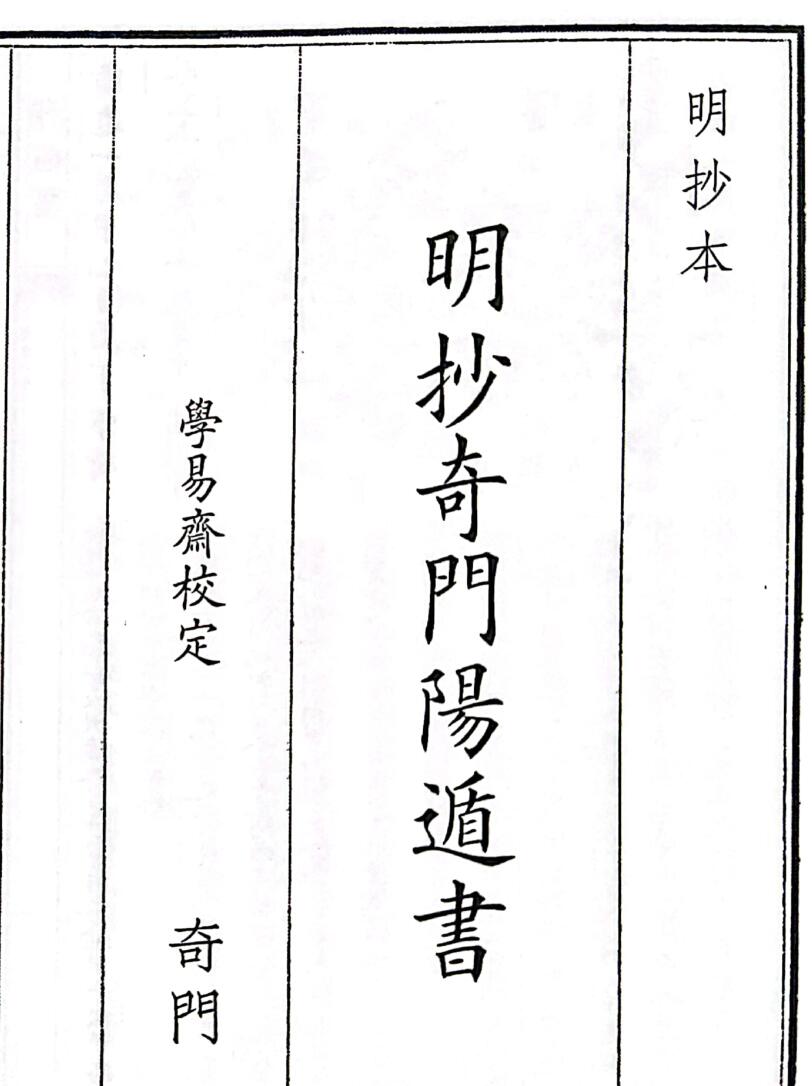 明抄本
明抄奇門陽遁書
學易齋校定
奇門